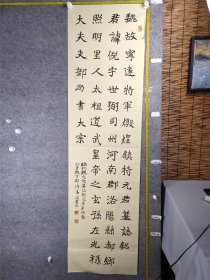 魏故寧遠將軍燉煌鎮將元君墓誌銘
君諱倪字世弼司州河南郡洛陽縣都鄉
照明里人太祖道武皇帝之玄孫左光祿
大夫吏部尚書大宗